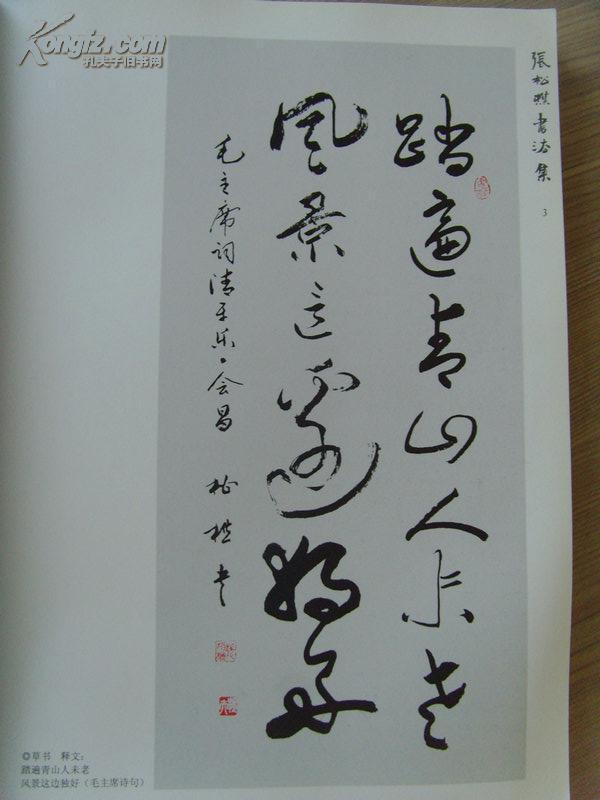 Kongfz.com
孔夫子旧书网
張松書法集
3
踏遍青山人未老
风景这邊独好
毛主席词清平乐·会昌 松书
◎草书 释文：
踏遍青山人未老
风景这边独好（毛主席诗句）